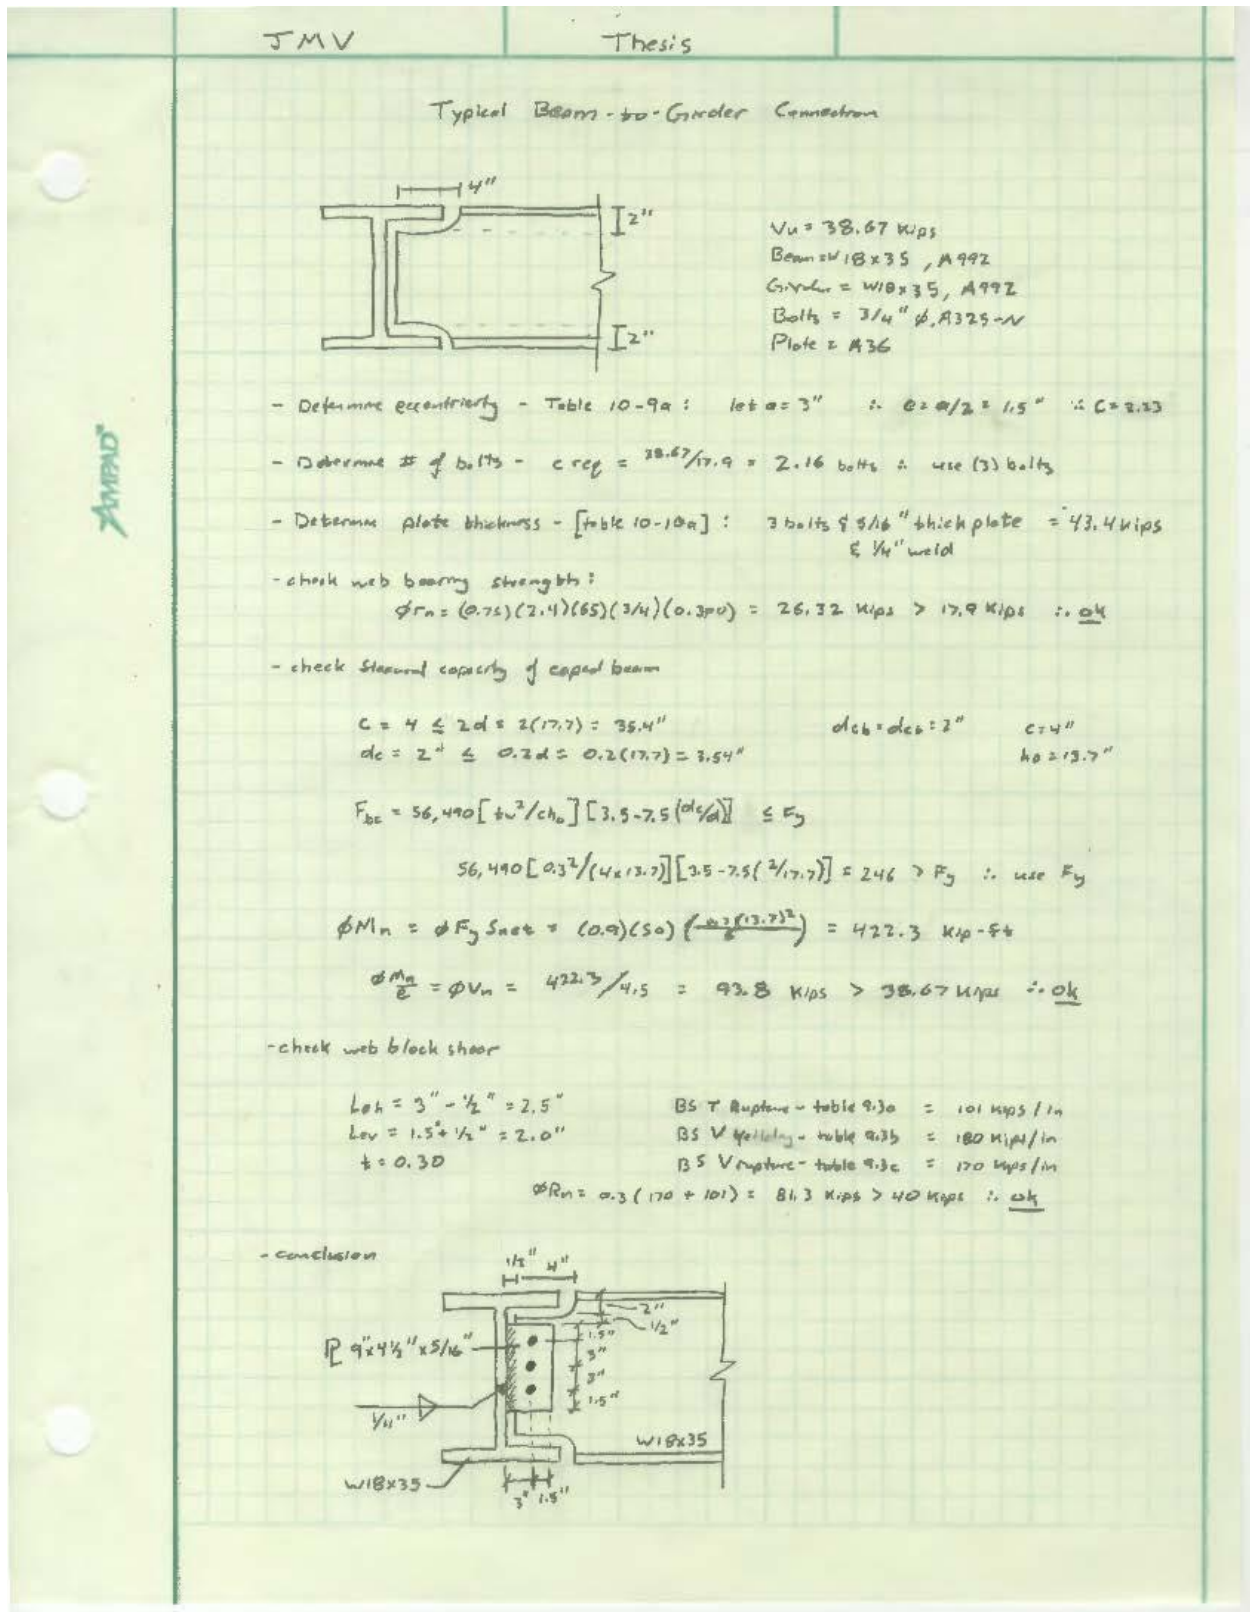 JMV Thesis
Typical Beam-to-Girder Connection
4"
2"
2"
Vu = 38.67 kips
Beam = W18x35, A992
Girder = W18x35, A992
Bolts = 3/4" ø, A325-N
Plate = A36
AMPAD®
- Determine eccentricity - Table 10-9a: let a = 3" ∴ e = a/2 = 1.5" ∴ C = 2.23
- Determine # of bolts - c req = 38.67/17.9 = 2.16 bolts ∴ use (3) bolts
- Determine plate thickness - [table 10-10a]: 3 bolts & 5/16" thick plate = 43.4 kips
& 1/4" weld
- check web bearing strength:
ør_n = (0.75)(2.4)(65)(3/4)(0.300) = 26.32 kips > 17.9 kips ∴ ok
- check flexural capacity of coped beam
c = 4 ≤ 2d = 2(17.7) = 35.4"
dc = 2" ≤ 0.2d = 0.2(17.7) = 3.54"
= 2" c = 4"
ho = 13.7"
Fbc = 56,490[tw²/cho][3.5-7.5(dc/d)] ≤ Fy
56,490[0.3²/(4x13.7)][3.5-7.5(2/17.7)] = 246 > Fy ∴ use Fy
øMn = øFy Snet = (0.9)(50)(0.3(13.7)²/6) = 422.3 kip-ft
øMn/e = øVn = 422.3/4.5 = 93.8 kips > 38.67 kips ∴ ok
- check web block shear
Leh = 3" - 1/2" = 2.5"
Lev = 1.5" + 1/2" = 2.0"
t = 0.30
BS T Rupture - table 9.3a = 101 kips/in
BS V Yielding - table 9.3b = 180 kips/in
BS V rupture - table 9.3c = 170 kips/in
øRn = 0.3(170 + 101) = 81.3 kips > 40 kips ∴ ok
- conclusion
1/2" 4"
2"
1/2"
1.5"
3"
3"
1.5"
PL 9"x4½"x5/16"
1/4"
W18x35
W18x35
3" 1.5"